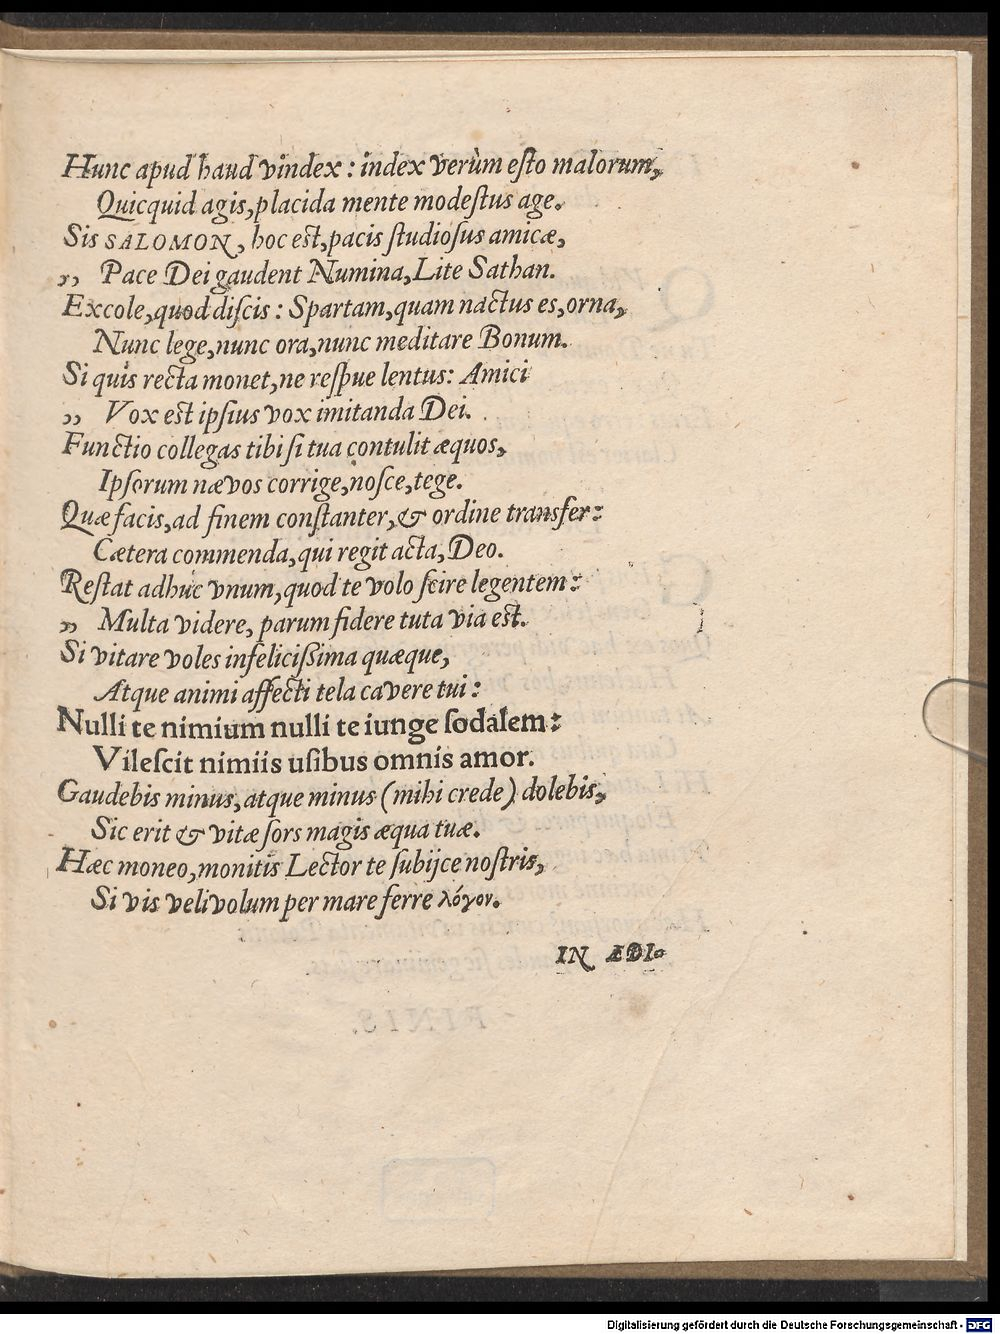 Hunc apud haud vindex: index verùm eſto malorum,
Quicquid agis, placida mente modeſtus age.
Sis SALOMON, hoc est, pacis ſtudioſus amicæ,
„ Pace Dei gaudent Numina, Lite Sathan.
Excole, quod diſcis: Spartam, quam nactus es, orna,
Nunc lege, nunc ora, nunc meditare Bonum.
Si quis recta monet, ne reſpue lentus: Amici
„ Vox est ipſius vox imitanda Dei.
Functio collegas tibi ſi tua contulit æquos,
Ipſorum nævos corrige, noſce, tege.
Quæ facis, ad finem conſtanter, & ordine transfer:
Cætera commenda, qui regit acta, Deo.
Reſtat adhuc vnum, quod te volo ſcire legentem:
„ Multa videre, parum fidere tuta via est.
Si vitare voles infeliciſſima quæque,
Atque animi affecti tela cavere tui:
Nulli te nimium nulli te iunge ſodalem:
Vileſcit nimiis uſibus omnis amor.
Gaudebis minus, atque minus (mihi crede) dolebis,
Sic erit & vitæ ſors magis æqua tuæ.
Hæc moneo, monitis Lector te ſubijce noſtris,
Si vis velivolum per mare ferre λόγον.
IN ÆDI-
Digitalisierung gefördert durch die Deutsche Forschungsgemeinschaft - DFG